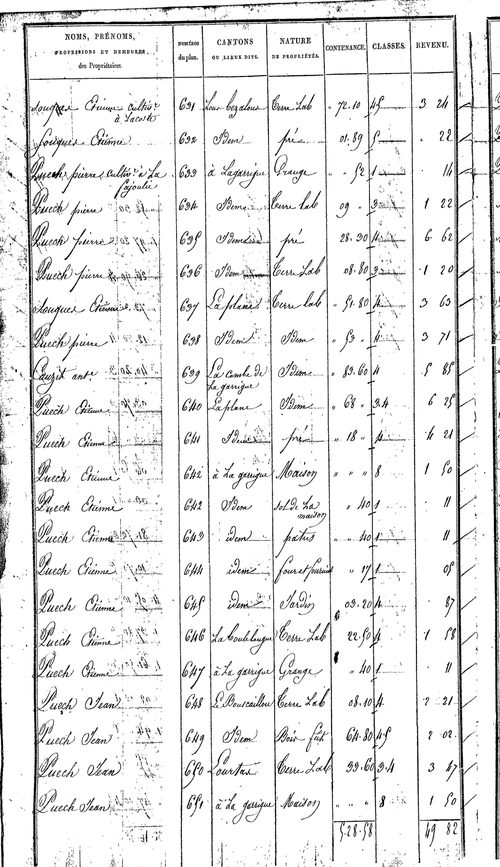 NOMS, PRÉNOMS, PROFESSIONS ET DEMEURES, des Propriétaires. NUMÉROS du plan. CANTONS OU LIEUX DITS. NATURE DE PROPRIÉTÉS. CONTENANCE. CLASSES. REVENU.
Etienne cultivr à Lacoste 631 Terre Lab " 72.10 45 3 24
Etienne 632 Idem pré 01.89 5 " 22
Puech pierre cultivr à La 633 à Lagarrigue Grange " " 52 1 " 14
Puech pierre 634 Idem Terre lab 09 " 3 1 22
Puech pierre 635 Idem pré 28.30 4 6 62
Puech pierre 636 Idem Terre Lab 08.80 3 1 20
Etienne 637 Laplane Terre lab " 51.80 4 3 63
Puech pierre 638 Idem Idem " 53 " 4 3 71
639 La combe de La garrigue Idem " 83.60 4 5 85
Puech Etienne 640 Laplane Idem " 68 " 3.4 6 25
Puech Etienne 641 Idem pré " 18 " 4 4 21
Puech Etienne 642 à La garrigue Maison " " " 8 1 50
Puech Etienne 642 Idem sol de La maison " 40 1 " 11
Puech Etienne 643 idem patus " " 40 1 " 11
Puech Etienne 644 idem four et " " 17 1 05
Puech Etienne 645 idem Jardin 03.20 4 87
Puech Etienne 646 Terre Lab 22.50 4 1 58
Puech Etienne 647 à La garrigue Grange " 40 1 " 11
Puech Jean 648 Terre Lab 08.10 4 2 21
Puech Jean 649 Idem Bois 64.80 45 2 02
Puech Jean 650 Lourtas Terre Lab 33.60 3.4 3 47
Puech Jean 651 à La garrigue Maison " " " 8 1 50
528.58 49 82